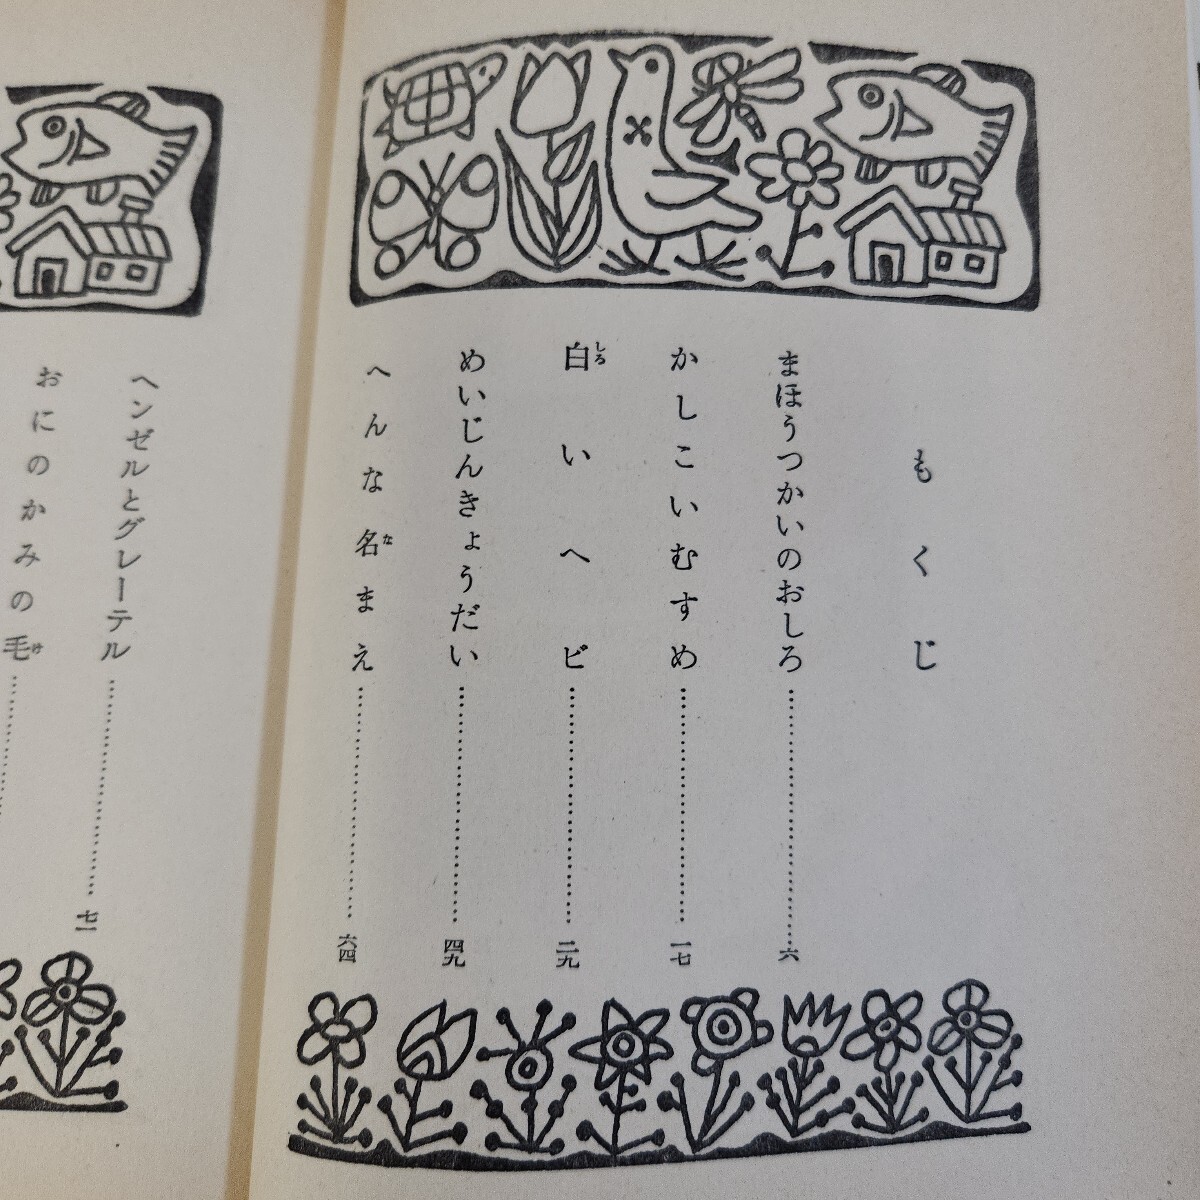 もくじ
まほうつかいのおしろ……六
かしこいむすめ……一七
白いヘビ……二九
しろ
めいじんきょうだい……四九
へんな名まえ……六四
な
ヘンゼルとグレーテル……七一
おにのかみの毛……
け